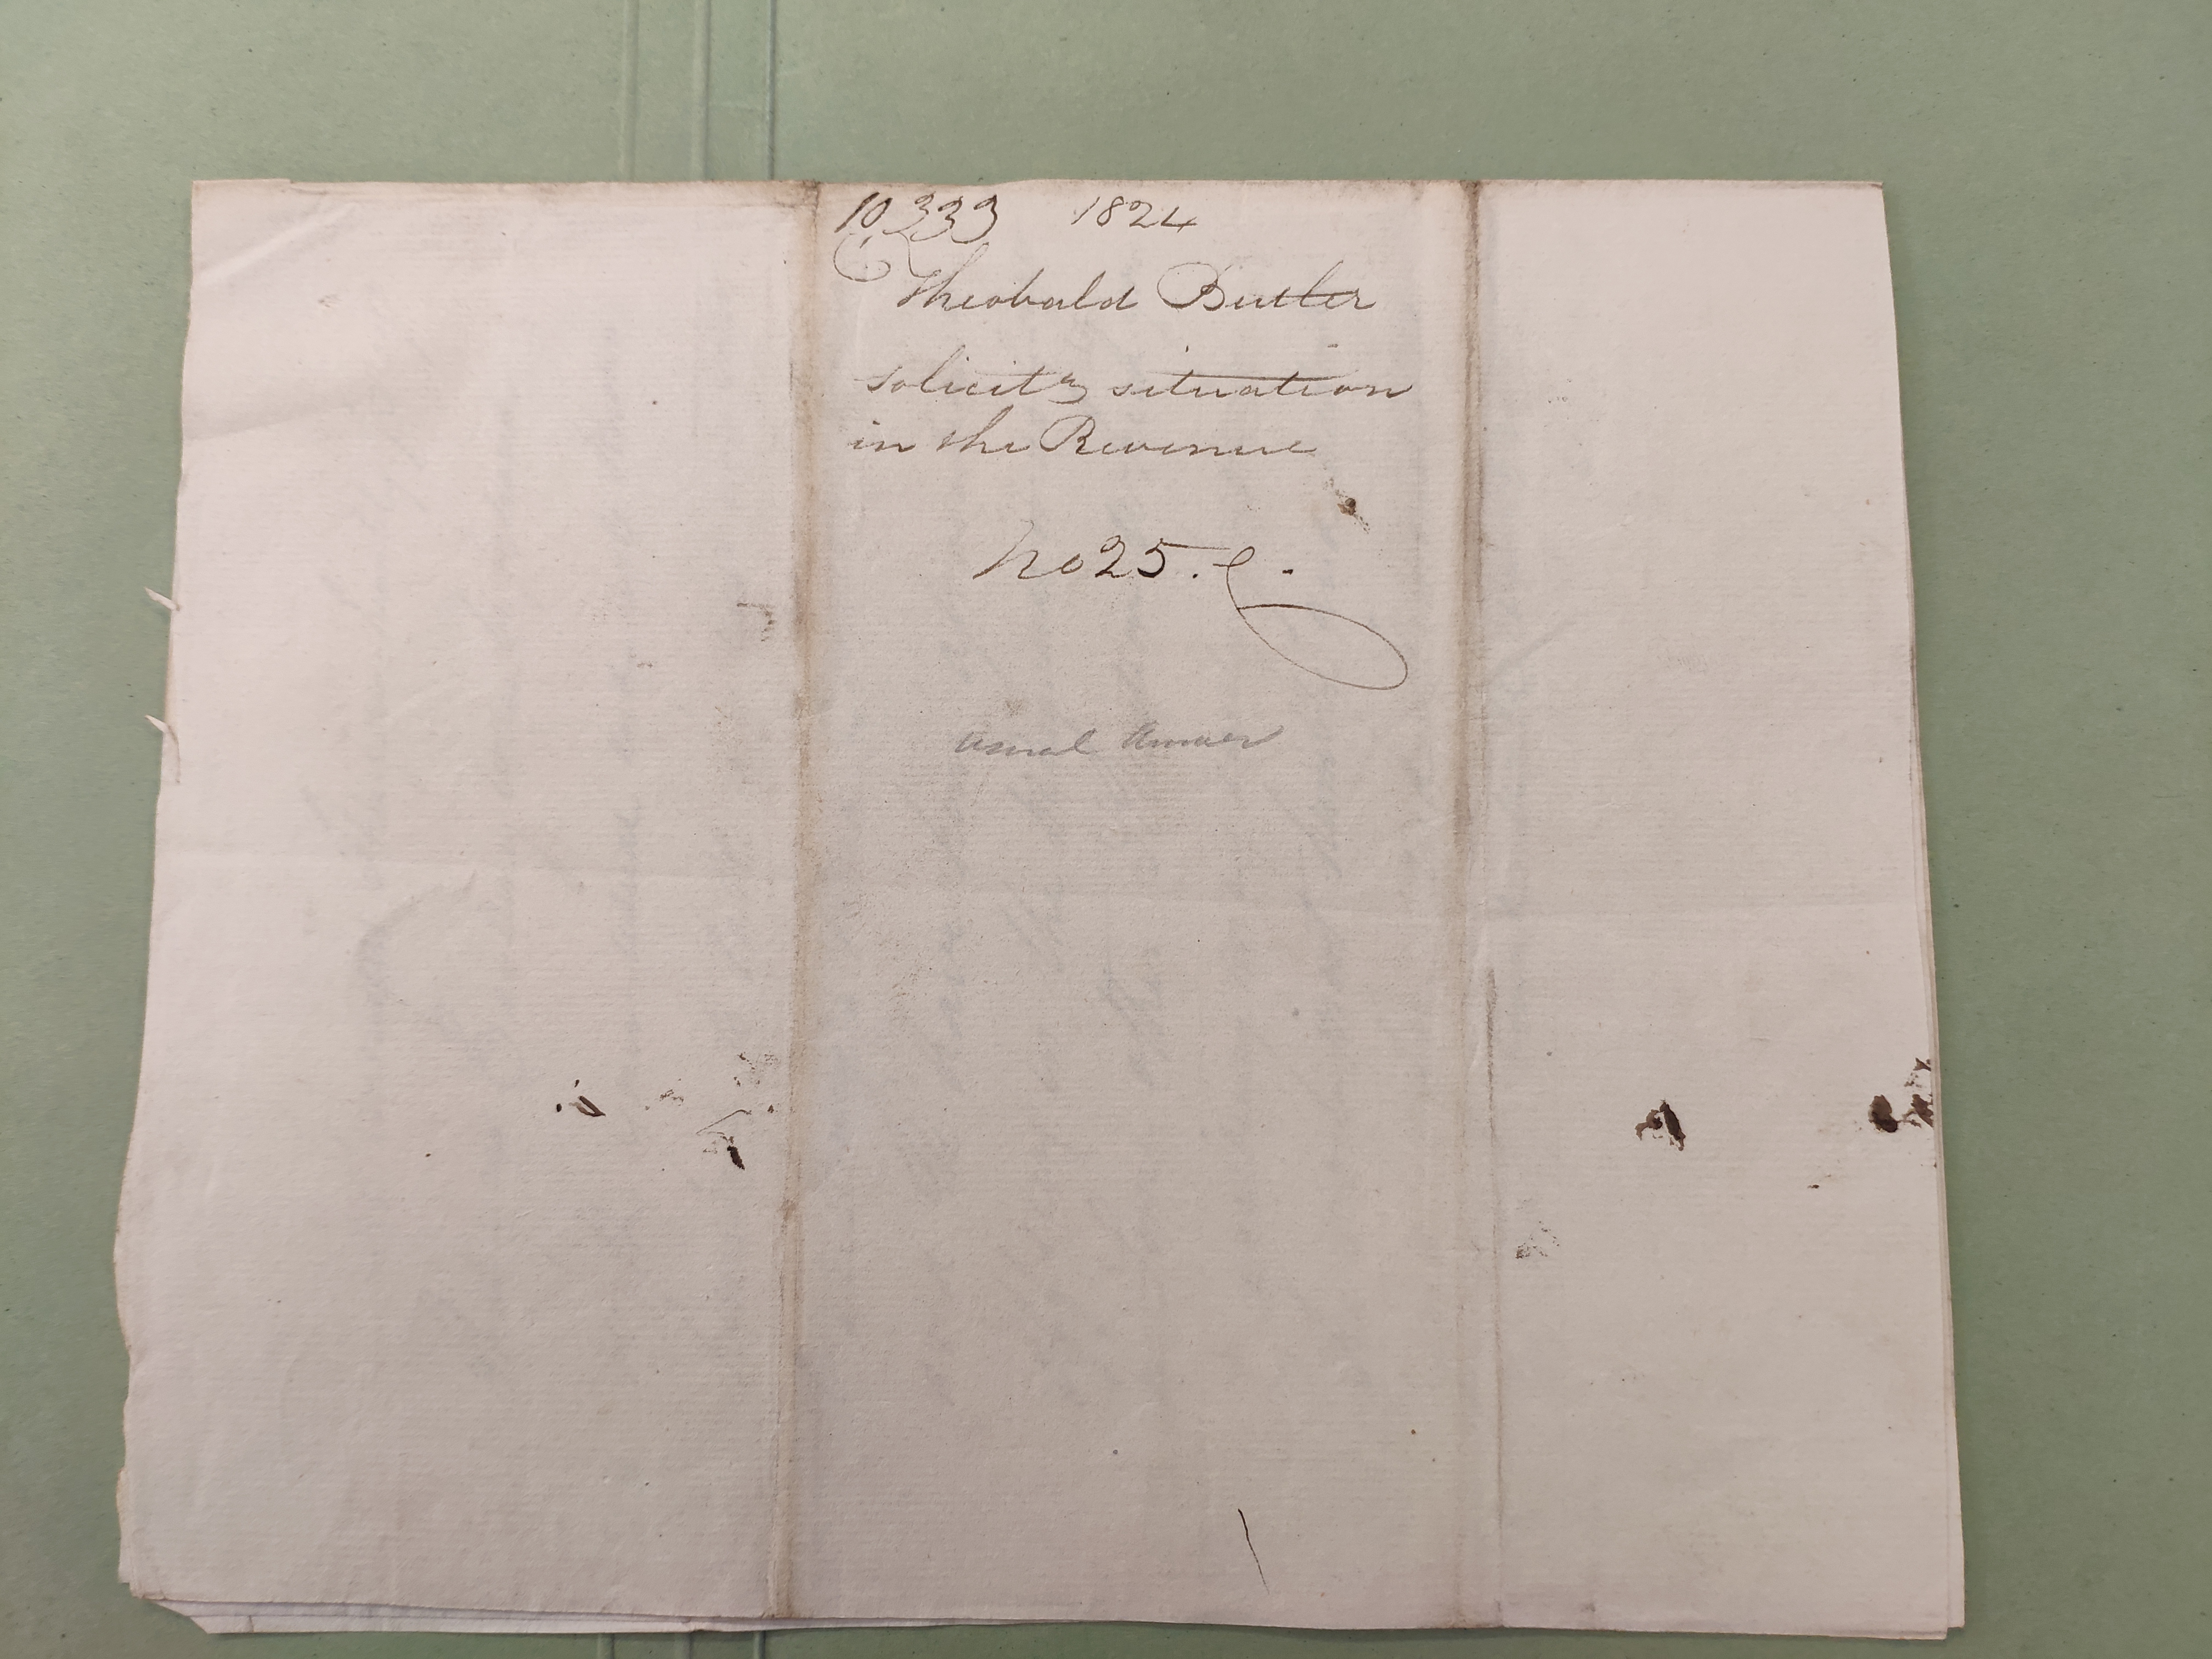 10,333 1824
Theobald Butler
solicits situation
in the Revenue
No 25.
Usual Answer